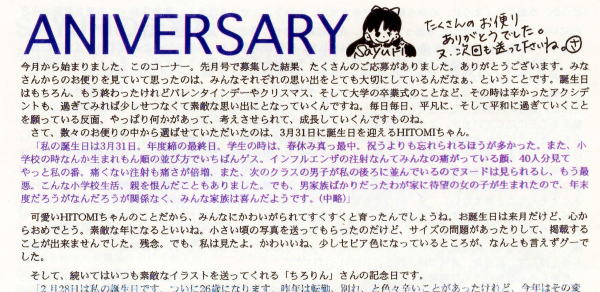 ANIVERSARY
Sayuri
たくさんのお便り
ありがとうでした。
又、次回も送って下さいね。
今月から始まりました、このコーナー。先月号で募集した結果、たくさんのご応募がありました。ありがとうございます。みな
さんからのお便りを見ていて思ったのは、みんなそれぞれの思い出をとても大切にしているんだなぁ、ということです。誕生日
はもちろん、もう終わったけれどバレンタインデーやクリスマス、そして大学の卒業式のことなど、その時は辛かったアクシデ
ントも、過ぎてみれば少しせつなくて素敵な思い出となっていくんですね。毎日毎日、平凡に、そして平和に過ぎていくこと
を願っている反面、やっぱり何かがあって、考えさせられて、成長していくんですものね。
さて、数々のお便りの中から選ばせていただいたのは、3月31日に誕生日を迎えるHITOMIちゃん。
「私の誕生日は3月31日。年度締の最終日。学生の時は、春休み真っ最中。祝うよりも忘れられるほうが多かった。また、小
学校の時なんか生まれもん順の並び方でいちばんゲス。インフルエンザの注射なんてみんなの痛がっている顔、40人分見て
やっと私の番。痛くない注射も痛さが倍増、また、次のクラスの男子が私の後ろに並んでいるのでヌードは見られるし、もう最
悪。こんな小学校生活、親を恨んだこともありました。でも、男家族ばかりだったわが家に待望の女の子が生まれたので、年末
度だろうがなんだろうが関係なく、みんな家族は喜んだようです。(中略)」
可愛いHITOMIちゃんのことだから、みんなにかわいがられてすくすくと育ったんでしょうね。お誕生日は来月だけど、心か
らおめでとう。素敵な年になるといいね。小さい頃の写真を送ってもらったのだけど、サイズの問題があったりして、掲載する
ことが出来ませんでした。残念。でも、私は見たよ。かわいいね、少しセピア色になっているところが、なんとも言えずグーで
した。
そして、続いてはいつも素敵なイラストを送ってくれる「ちろりん」さんの記念日です。
「2月28日は私の誕生日です。ついに26歳になります。昨年は転勤、別れ、と色々辛いことがあったけれど、今年はその変